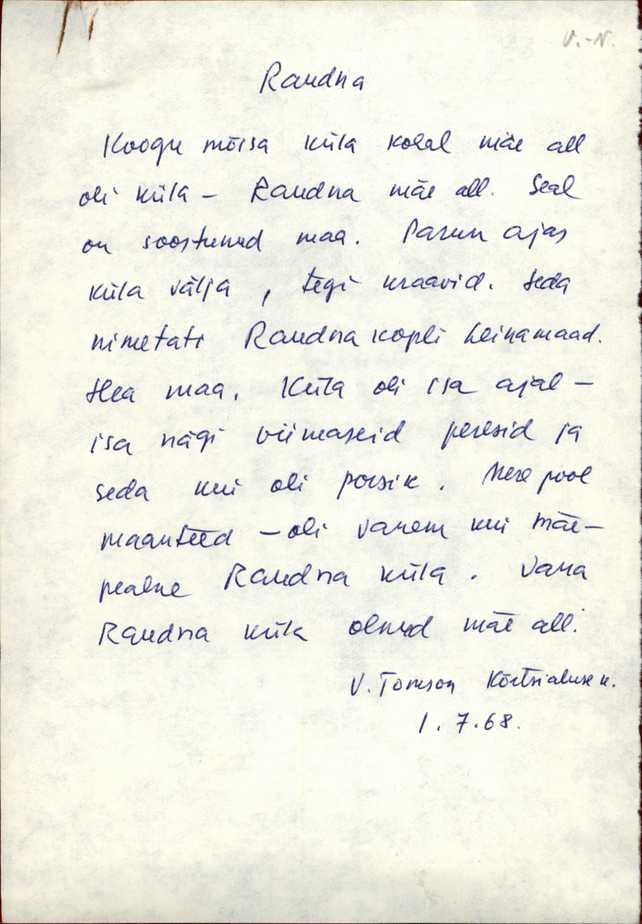 V.-N.
Raudna
Koogu mõisa küla kohal mäe all
oli küla - Raudna mäe all. Seal
on soostunud maa. Parun ajas
küla välja, tegi kraavid. Seda
nimetati Raudna kopli heinamaad.
Hea maa. Küla oli isa ajal -
isa nägi viimaseid peresid ja
seda kui oli poisik. Mere pool
maanteed - oli vanem kui mäe-
pealne Raudna küla. Vana
Raudna küla olnud mäe all.
V. Tomson Kõrtsialuse k.
1.7.68.